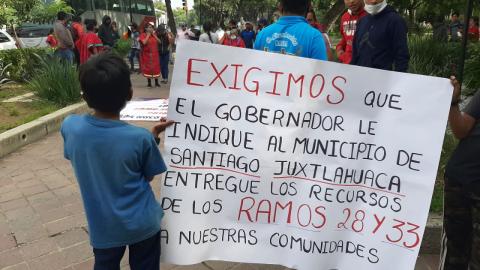 EXIGIMOS QUE
EL GOBERNADOR LE
INDIQUE AL MUNICIPIO DE
SANTIAGO JUXTLAHUACA
ENTREGUE LOS RECURSOS
DE LOS RAMOS 28 Y 33
A NUESTRAS COMUNIDADES